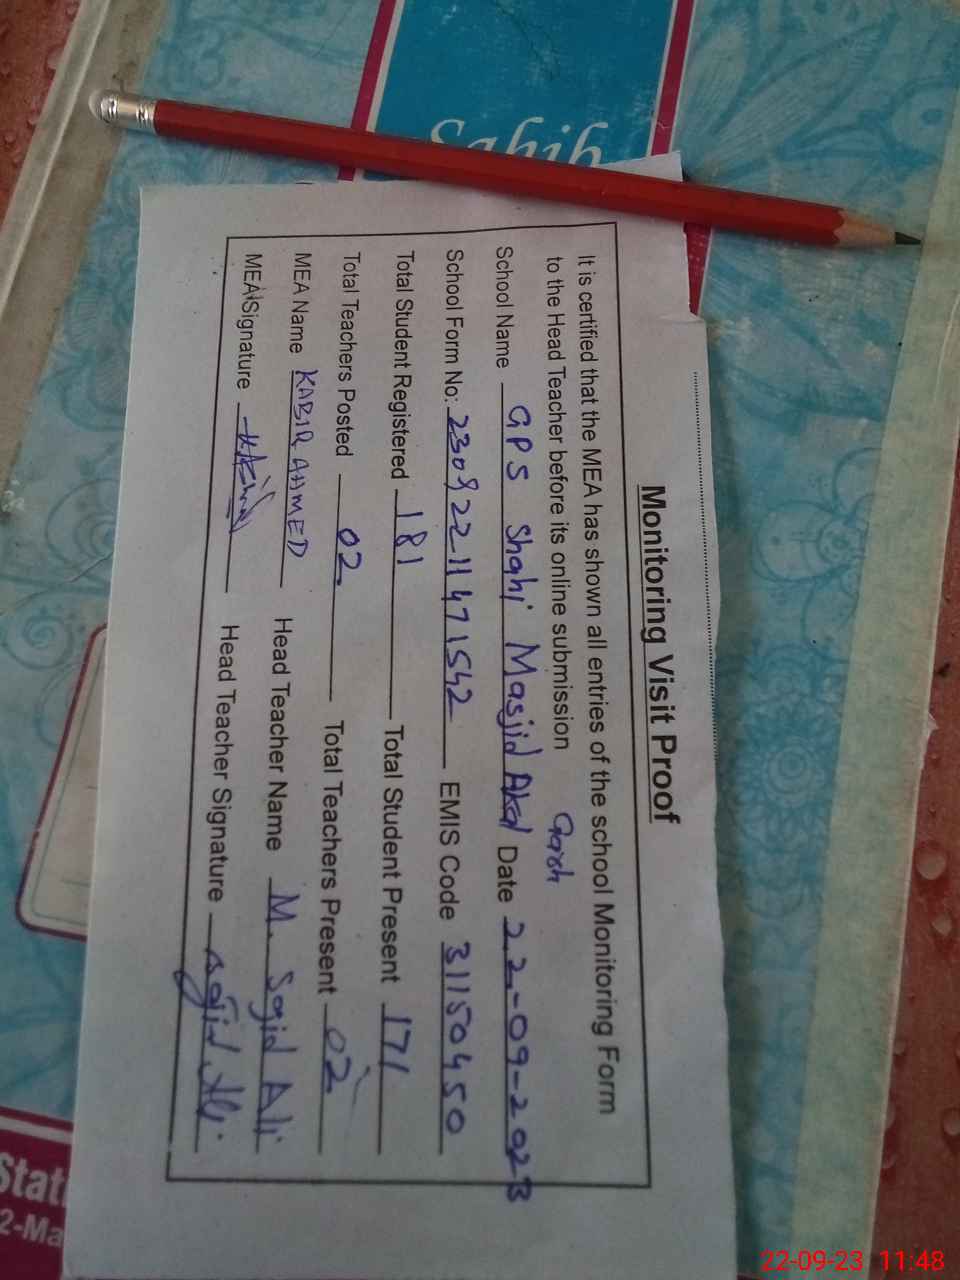 Sahib
Monitoring Visit Proof
It is certified that the MEA has shown all entries of the school Monitoring Form
to the Head Teacher before its online submission Garh
School Name GPS Shahi Masjid Akal Date 22-09-2023
School Form No: 23092211471542 EMIS Code 31150450
Total Student Registered 181 Total Student Present 171
Total Teachers Posted 02 Total Teachers Present 02
MEA Name KABIR AHMED Head Teacher Name M. Sajid Ali
MEA Signature Head Teacher Signature Sajid Ali
Stat
2-Ma
22-09-23 11:48